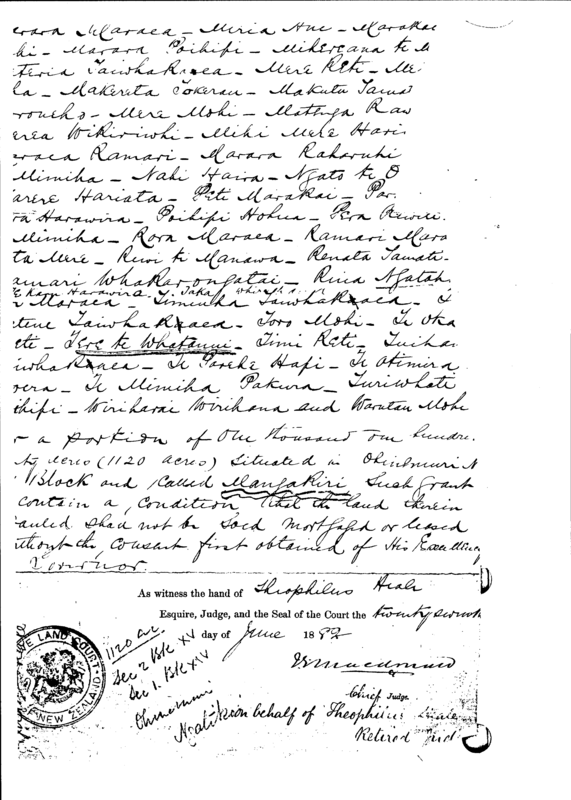 Maraea – Miria Hue – Marakae
hi – Marara Poihipi – Mihereana te
Taiwhakaea – Mere Reti – Me
la – Makereta Tokerau – Makuta
Mere Mohi – Matenga Raw
Wikiriwhi – Mihi Mere Hari
eraea Ramari – Marara Raharuhi
Mimiha – Nahi Haira – Ngato te O
arere Hariata – Pete Marakai – Par
ra Harawira – Poihipi Hohua – Pera
Mimiha – Rora Maraea – Ramari Mara
ta Mere – Rewi te Manawa – Renata Tamati
amari Whakarongatai – Rina Ngatah
Harawira
Maraea – Timinha Taiwhakaea – T
tene Taiwhakaea – Toro Mohi – Te Oka
ete – Tere te Whatanui – Timi Reti – Tuihan
iwhakaea – Te Pareke Hapi – Te Otimira
vera – Te Mimiha Pakura – Turiwhati
ihipi – Wiriharai Wirihana and Warutau Mohe
a portion of One thousand one hundre
ty acres (1120 acres) Situated in Ohinemuri N
Block and called Mangakiri Such grant
contain a condition that the land therein
shall not be sold mortgaged or leased
ithout the consent first obtained of His Excellency
Governor.
As witness the hand of Theophilus Heale
Esquire, Judge, and the Seal of the Court the twenty seventh
day of June 1892
E LAND COURT
NEW ZEALAND
1120 ac
Sec 2 Blk XV
Sec 1. Blk XIV
Ohinemuri
Macdonald
Chief Judge.
on behalf of Theophilus Heale
Retired Jud